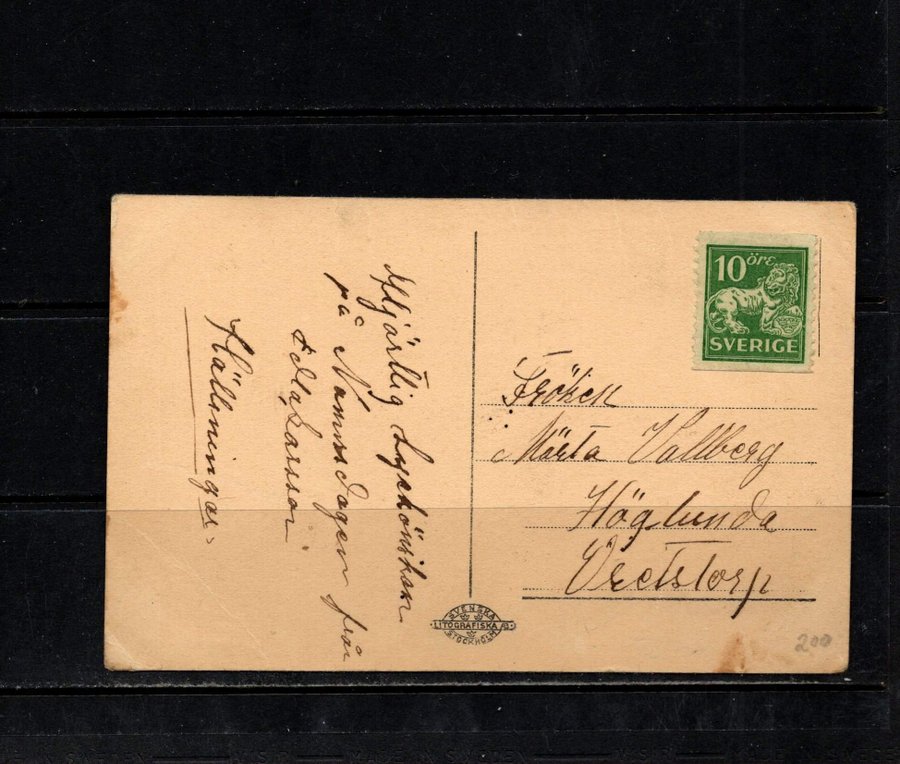 Hjärtlig Lyckönskan
på Namnsdagen från
Larsson
Hällningar
10 öre
SVERIGE
Fröken
Märta Vallberg
Höglunda
Vretstorp
SVENSKA
LITOGRAFISKA A.B.
STOCKHOLM
200